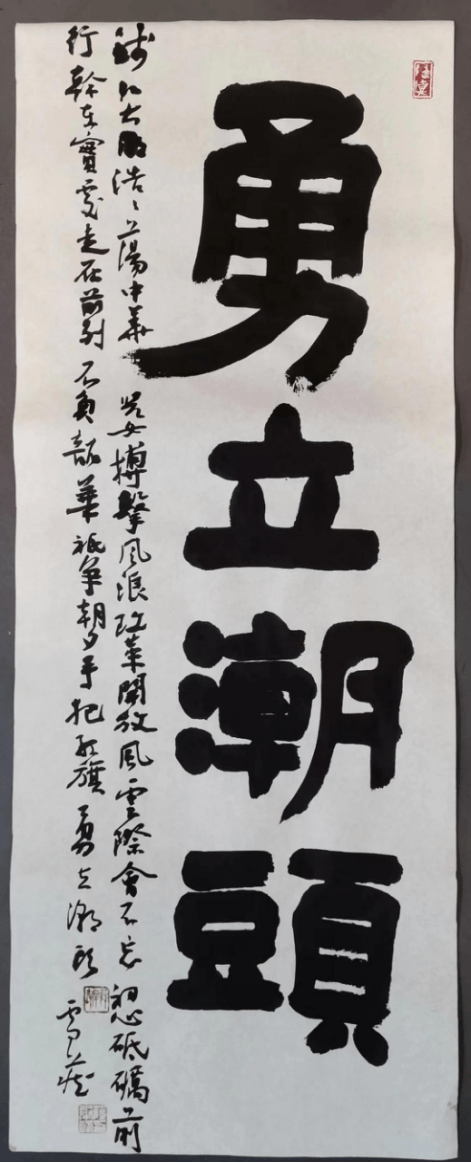 勇立潮頭
錢江大潮浩〻蕩中華兒女搏擊風浪改革開放風雲際會不忘初心砥礪前
行幹在實處走在前列不負韶華祗爭朝夕手把紅旗勇立潮頭